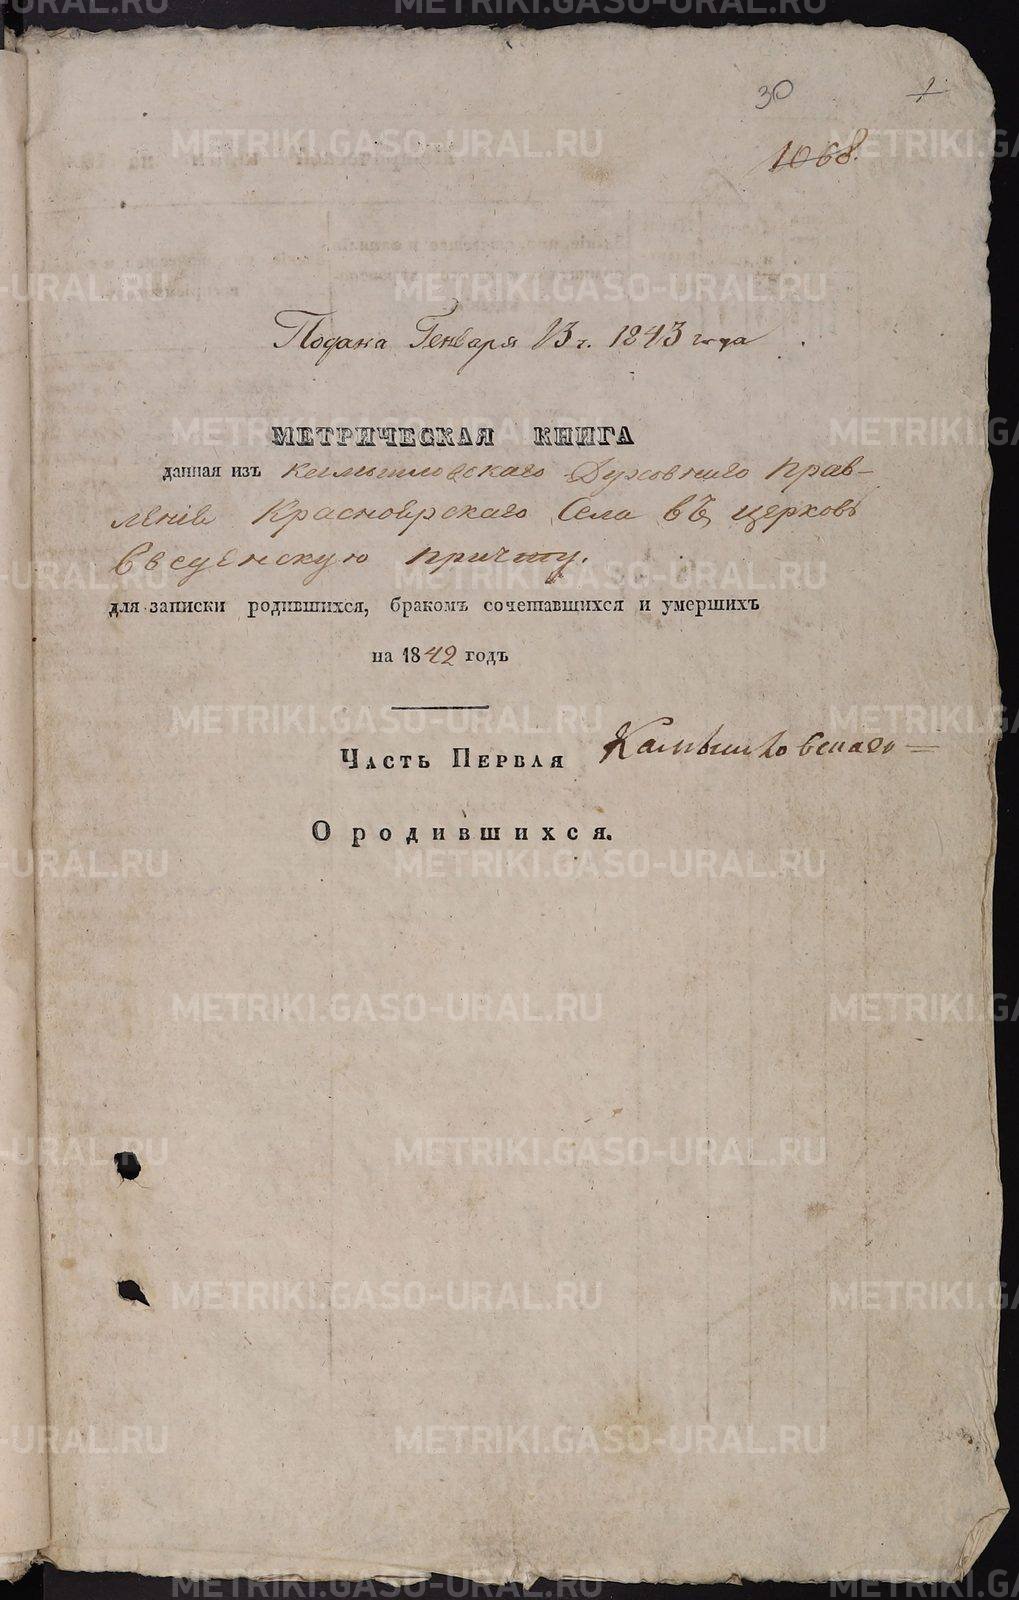 30
1
1068.
Подана Генваря 13 ч. 1843 года
МЕТРИЧЕСКАЯ КНИГА
данная изъ Камышловскаго Духовнаго Прав-
ленія Красноярскаго Села въ церковь
Введенскую причту.
для записки родившихся, бракомъ сочетавшихся и умершихъ
на 1842 годъ
Камышловскаго =
Часть Первая
О родившихся.
METRIKI.GASO-URAL.RU